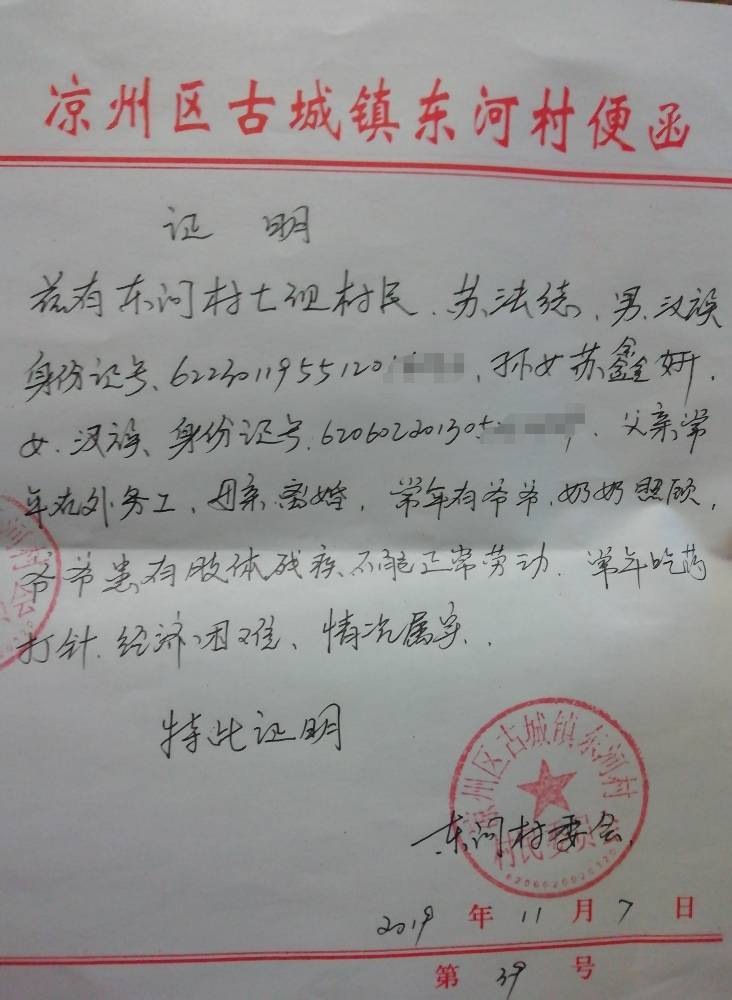 凉州区古城镇东河村便函
证 明
兹有东河村七组村民、苏法德,男、汉族
身份证号、6223011955120,孙女苏鑫妍,
女、汉族、身份证号、620602201305,父亲常
年在外务工、母亲离婚,常年有爷爷、奶奶照顾,
爷爷患有肢体残疾、不能正常劳动、常年吃药
打针、经济困难、情况属实、
特此证明
凉州区古城镇东河村
村民委员会
东河村委会、
6206020020320
2019 年 11 月 7 日
第 39 号